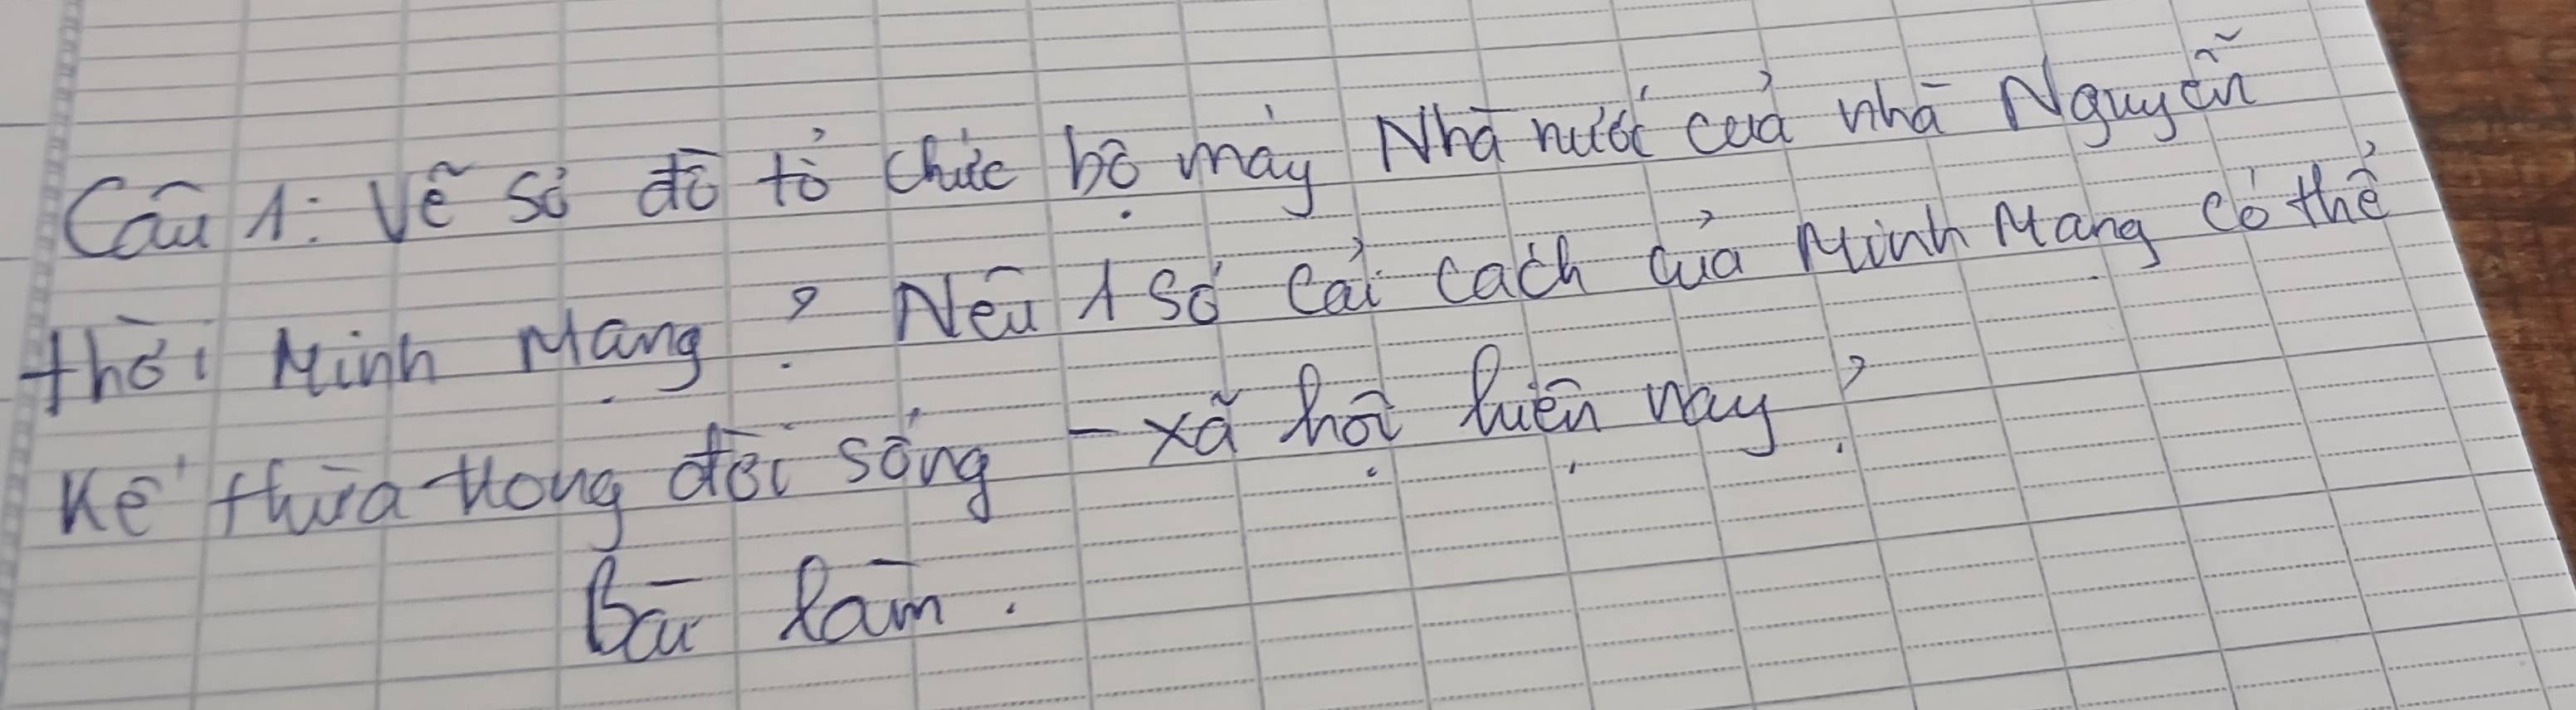 Câu 1: Vẽ sơ đồ tổ chức bộ máy Nhà nước của nhà Nguyễn
thời Minh Mạng ? Nêu 1 số cải cách của Minh Mạng có thể
kế thừa trong đời sống - xã hội hiện nay ?
Bài làm.